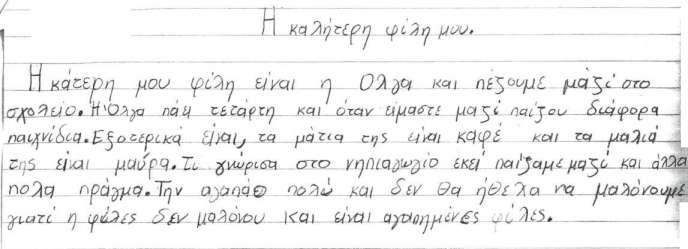 Η καλήτερη φίλη μου.
Η κάτερη μου φίλη είναι η Ολγα και πέζουμε μαζί στο
σχολείο. Η Όλγα πάει τετάρτη και όταν είμαστε μαζί παίζου διάφορα
παιχνίδια. Εξοτερικά είναι, τα μάτια της είναι καφέ και τα μαλιά
της είναι μαύρα. Τι γνώρισα στο νηπιαγωγίο εκεί παίζαμε μαζί και άλλα
πολα πράγμα. Την αγαπάο πολύ και δεν θα ήθελα να μαλόνουμε
γιατί η φίλες δεν μαλόνου και είναι αγαπημένες φίλες.